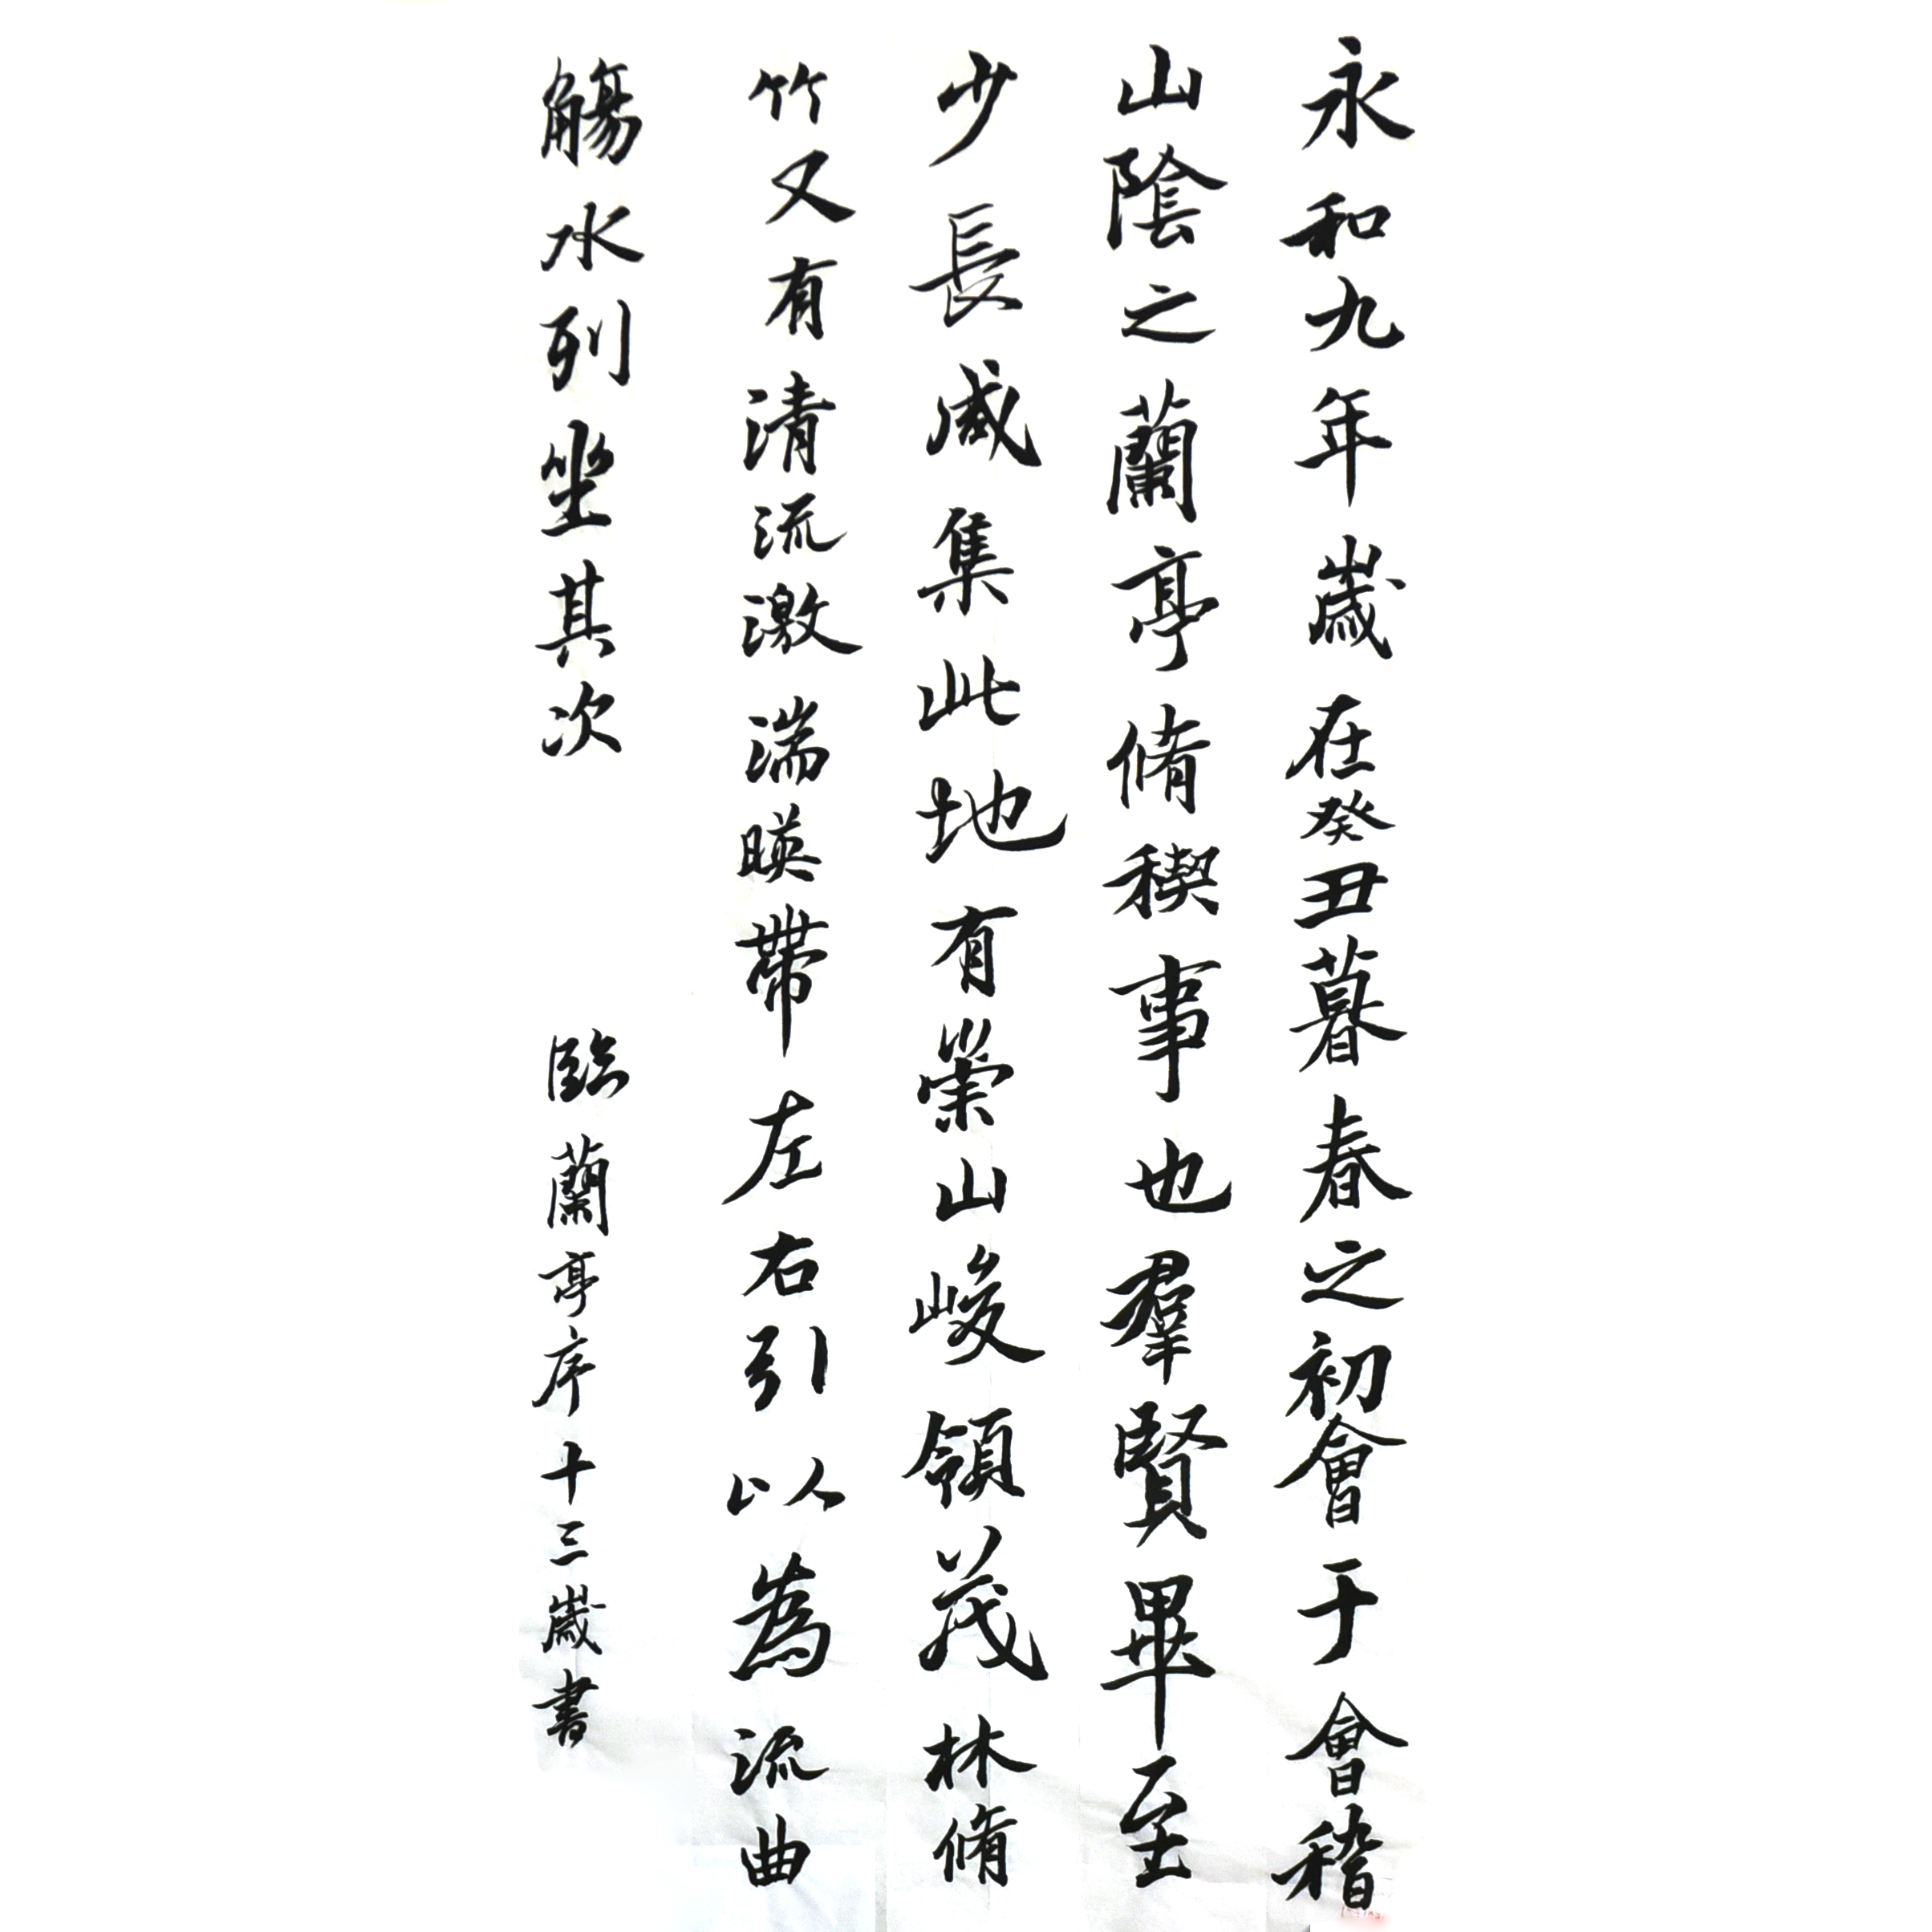 永和九年歲在癸丑暮春之初會于會稽
山陰之蘭亭脩稧事也羣賢畢至
少長咸集此地有崇山峻領茂林脩
竹又有清流激湍暎帶左右引以為流曲
觴水列坐其次 臨蘭亭序十三歲書